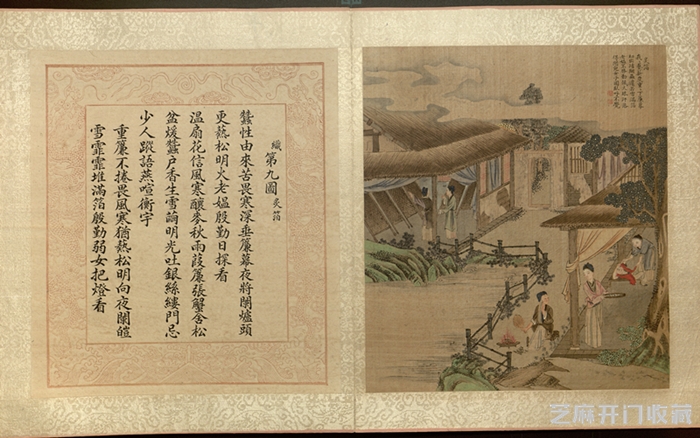 織第九圖 炙箔
蠶性由來苦畏寒深垂簾幕夜將闌爐頭
更爇松明火老媼殷勤日探看
溫扇花信風寒釀麥秋雨葭簾張蟹舍松
盆煖蠶戶香生雪繭明光吐銀絲縷門忌
少人蹤語燕喧衡宇
重簾不捲畏風寒猶爇松明向夜闌皚
雪霏霏堆滿箔殷勤弱女把燈看
炙箔
芝麻开门收藏